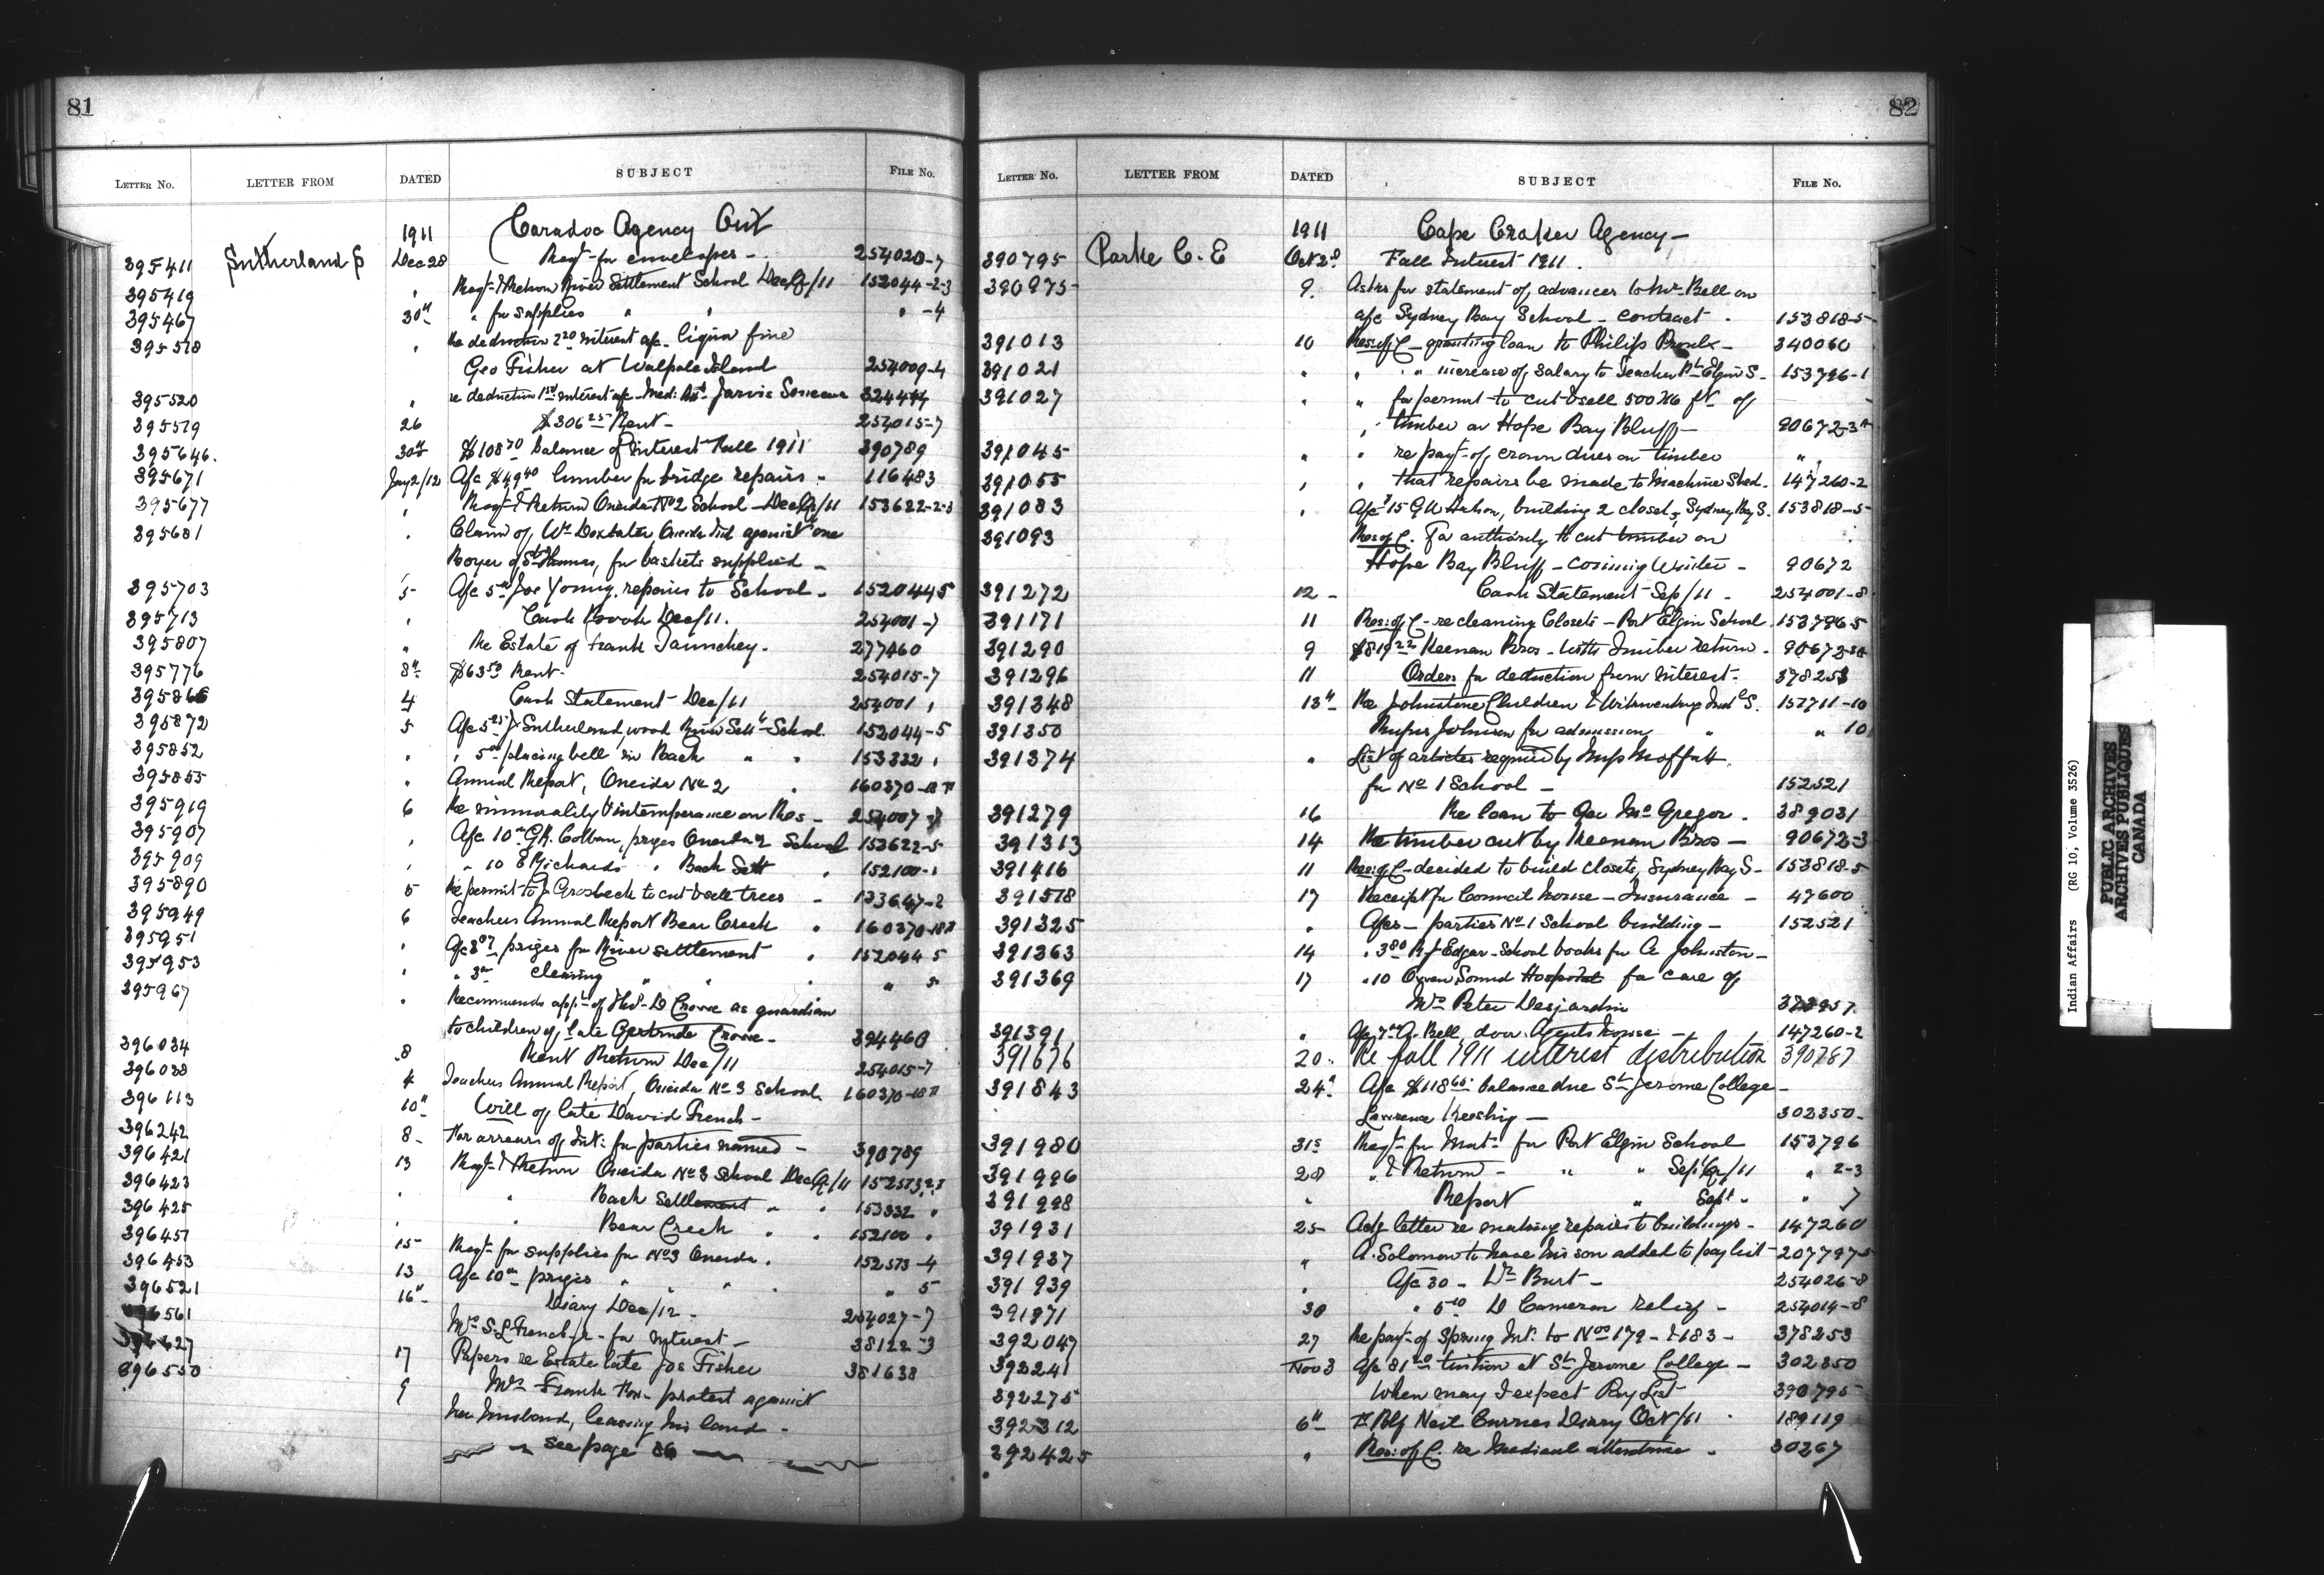 81
LETTER NO. LETTER FROM DATED SUBJECT FILE NO.
1911 Caradoc Agency Ont
395411 Sutherland S Dec 28 Reqt for envelopes - 254020-7
395419 " Reqt & Return River Settlement School Dec Qr/11 152044-2-3
395467 30th " for supplies " " " -4
395518 " Re deduction 2.20 interest a/c liquor fine
Geo Fisher at Walpole Island 254009-4
395520 " re deduction interest a/c Med: Jarvis 324444
395519 26 $306.25 Rent - 254015-7
395646. 30th $108.70 balance of interest Fall 1911 390789
395671 Jany 2/12 A/c $49.40 lumber for bridge repairs - 116483
395677 " Reqt & Return Oneida No 2 School - Dec Qr/11 153622-2-3
395681 " Claim of Wm Doxtater Oneida Ind against one
Boyer of St Thomas, for baskets supplied -
395703 5 A/c 5.00 Joe Young, repairs to School - 152044 5
395713 " Cash Book Dec/11. 254001-7
395807 " Re Estate of Frank 277460
395776 8th $63.50 Rent - 254015-7
395866 4 Cash Statement - Dec/11 254001 "
395872 5 A/c 5.25 J Sutherland wood River Settt School 152044-5
395852 " " 5.00 placing bell in Back " " 153332 "
395855 " Annual Report, Oneida No 2 " 160370-18
395919 6 Re immorality & intemperance on Res - 254007-7
395907 " A/c 10.00 G.R. Colban, prizes Oneida 2 School 153622-5
395909 " " 10 E Richards " Back Sett " 152100-"
395890 5 Re permit to J Grosbeck to cut & sell trees - 133647-2
395949 6 Teachers Annual Report Bear Creek " 160370-18
395951 " A/c 3.07 prizes for River settlement " 152044 5
395953 " " 3.00 cleaning " " " " 5
395967 " Recommends applt of Thos. D Crowe as guardian
to children of late Gertrude Crowe - 394460
396034 8 Rent Return Dec/11 254015-7
396088 4 Teachers Annual Report, Oneida No 3 School 160370-18
396113 10th Will of late David French -
396242 8 - For arrears of Int: for parties named - 390789
396421 13 Reqt & Return Oneida No 3 School Dec Qr/11 152573 2-3
396423 " " Back Settlement " " 153332 "
396425 " " Bear Creek " " 152100 "
396451 15 Reqt for supplies for No 3 Oneida. 152573-4
396453 13 A/c 10.00 prizes " " " 5
396521 16th Diary Dec/12 - 254027-7
396561 Mrs S. L French - for interest - 38122-3
17 Papers re Estate late Jos Fisher 381638
396550 9 Mrs Frank Fox - protest against
her husband, leasing his land -
see page 86
82
LETTER NO. LETTER FROM DATED SUBJECT FILE NO.
1911 Cape Croker Agency -
390795 Parke C. E Oct 2nd Fall Interest 1911.
390975 9. Asks for statement of advances to Mr Bell on
a/c Sydney Bay School - contract - 153818-5
391013 10 Res: of C - granting loan to Philip Proulx - 340060
391021 " " " increase of salary to Teacher Pt Elgin S - 153796-1
391027 " " for permit to cut & sell 500 M ft of
timber on Hope Bay Bluff - 90672-3
391045 " " re payt of crown dues on timber " "
391055 " " that repairs be made to Machine Shed - 147260-2
391083 " A/c 15 building 2 closets, Sydney Bay S. 153818-5
391093 Res of C. For authority to cut timber on
Hope Bay Bluff - coming Winter - 90672
391272 12 - Cash Statement - Sep/11 - 254001-8
391171 11 Res: of C - re cleaning Closets - Port Elgin School 153796 5
391290 9 $819.22 Keenan Bros - with Timber return - 90672-3
391296 11 Orders for deduction from interest - 378253
391348 13th Re Johnstone Children & Wikwemikong Ind S. 157711-10
391350 Rufus Johnson for admission " " 10
391374 " List of articles required by Miss Moffatt
for No 1 School - 152521
391279 16 Re loan to Geo McGregor. 389031
391313 14 Re timber cut by Keenan Bros - 90672-3
391416 11 Res: of C - decided to build closets, Sydney Bay S - 153818-5
391518 17 Receipt for Council house - Insurance - 47600
391325 " A/cs - parties No 1 School building - 152521
391363 14 " 3.80 R J Edgar - School books for A Johnston -
391369 17 " 10 Owen Sound Hospital for care of
Mrs Peter Desjardin
391391 " A/c 7.00 A. Bell, door Agents house - 147260-2
391676 20 " Re fall 1911 interest distribution 390787
391843 24th A/c $118.65 balance due St Jerome College -
Lawrence Keeshig - 302350 -
391980 31st Reqt for Mat. for Port Elgin School 153796
391996 28 " & Return - " " Sep Qr/11 " 2-3
391998 " Report " Sept " " 7
391931 25 Adg letter re making repairs to buildings - 147260
391937 " A. Solomon to have his son added to pay list - 207797-5
391939 " A/c 30 - Dr Burt - 254026-8
391971 30 " 5.10 D Cameron relief - 254014-8
392047 27 Re payt of Spring Int. to Nos 179 - & 183 - 378253
392241 Nov 3 A/c 81.20 tuition at St Jerome College - 302350
392275 When may I expect Pay List 390795
392312 6th Neil Currie Diary Oct/11 - 189119
392425 " Res: of C. re Medical attendance - 30267
Indian Affairs (RG 10, Volume 3526)
PUBLIC ARCHIVES
ARCHIVES PUBLIQUES
CANADA